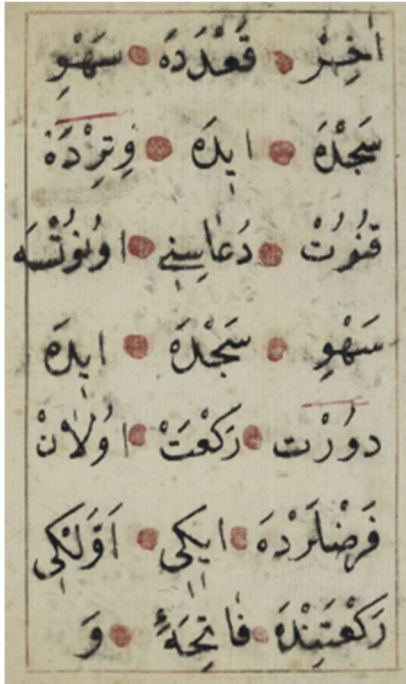 اٰخِرْ قَعْدَدَهْ سَهْوِ
سَجْدَهْ ايدَه وِتِرْدَهْ
قُنُوُتْ دُعَاسِنِے اوُنوُتْسَه
سَهْوِ سَجْدَهْ ايدَه
دوُرْت رَكْعَتْ اوُلَانْ
فَرْضْلَرْدَهْ ايكِى اَوَّلْكِى
رَكْعَتِنْدَهْ فَاتِحَهٔ وَ